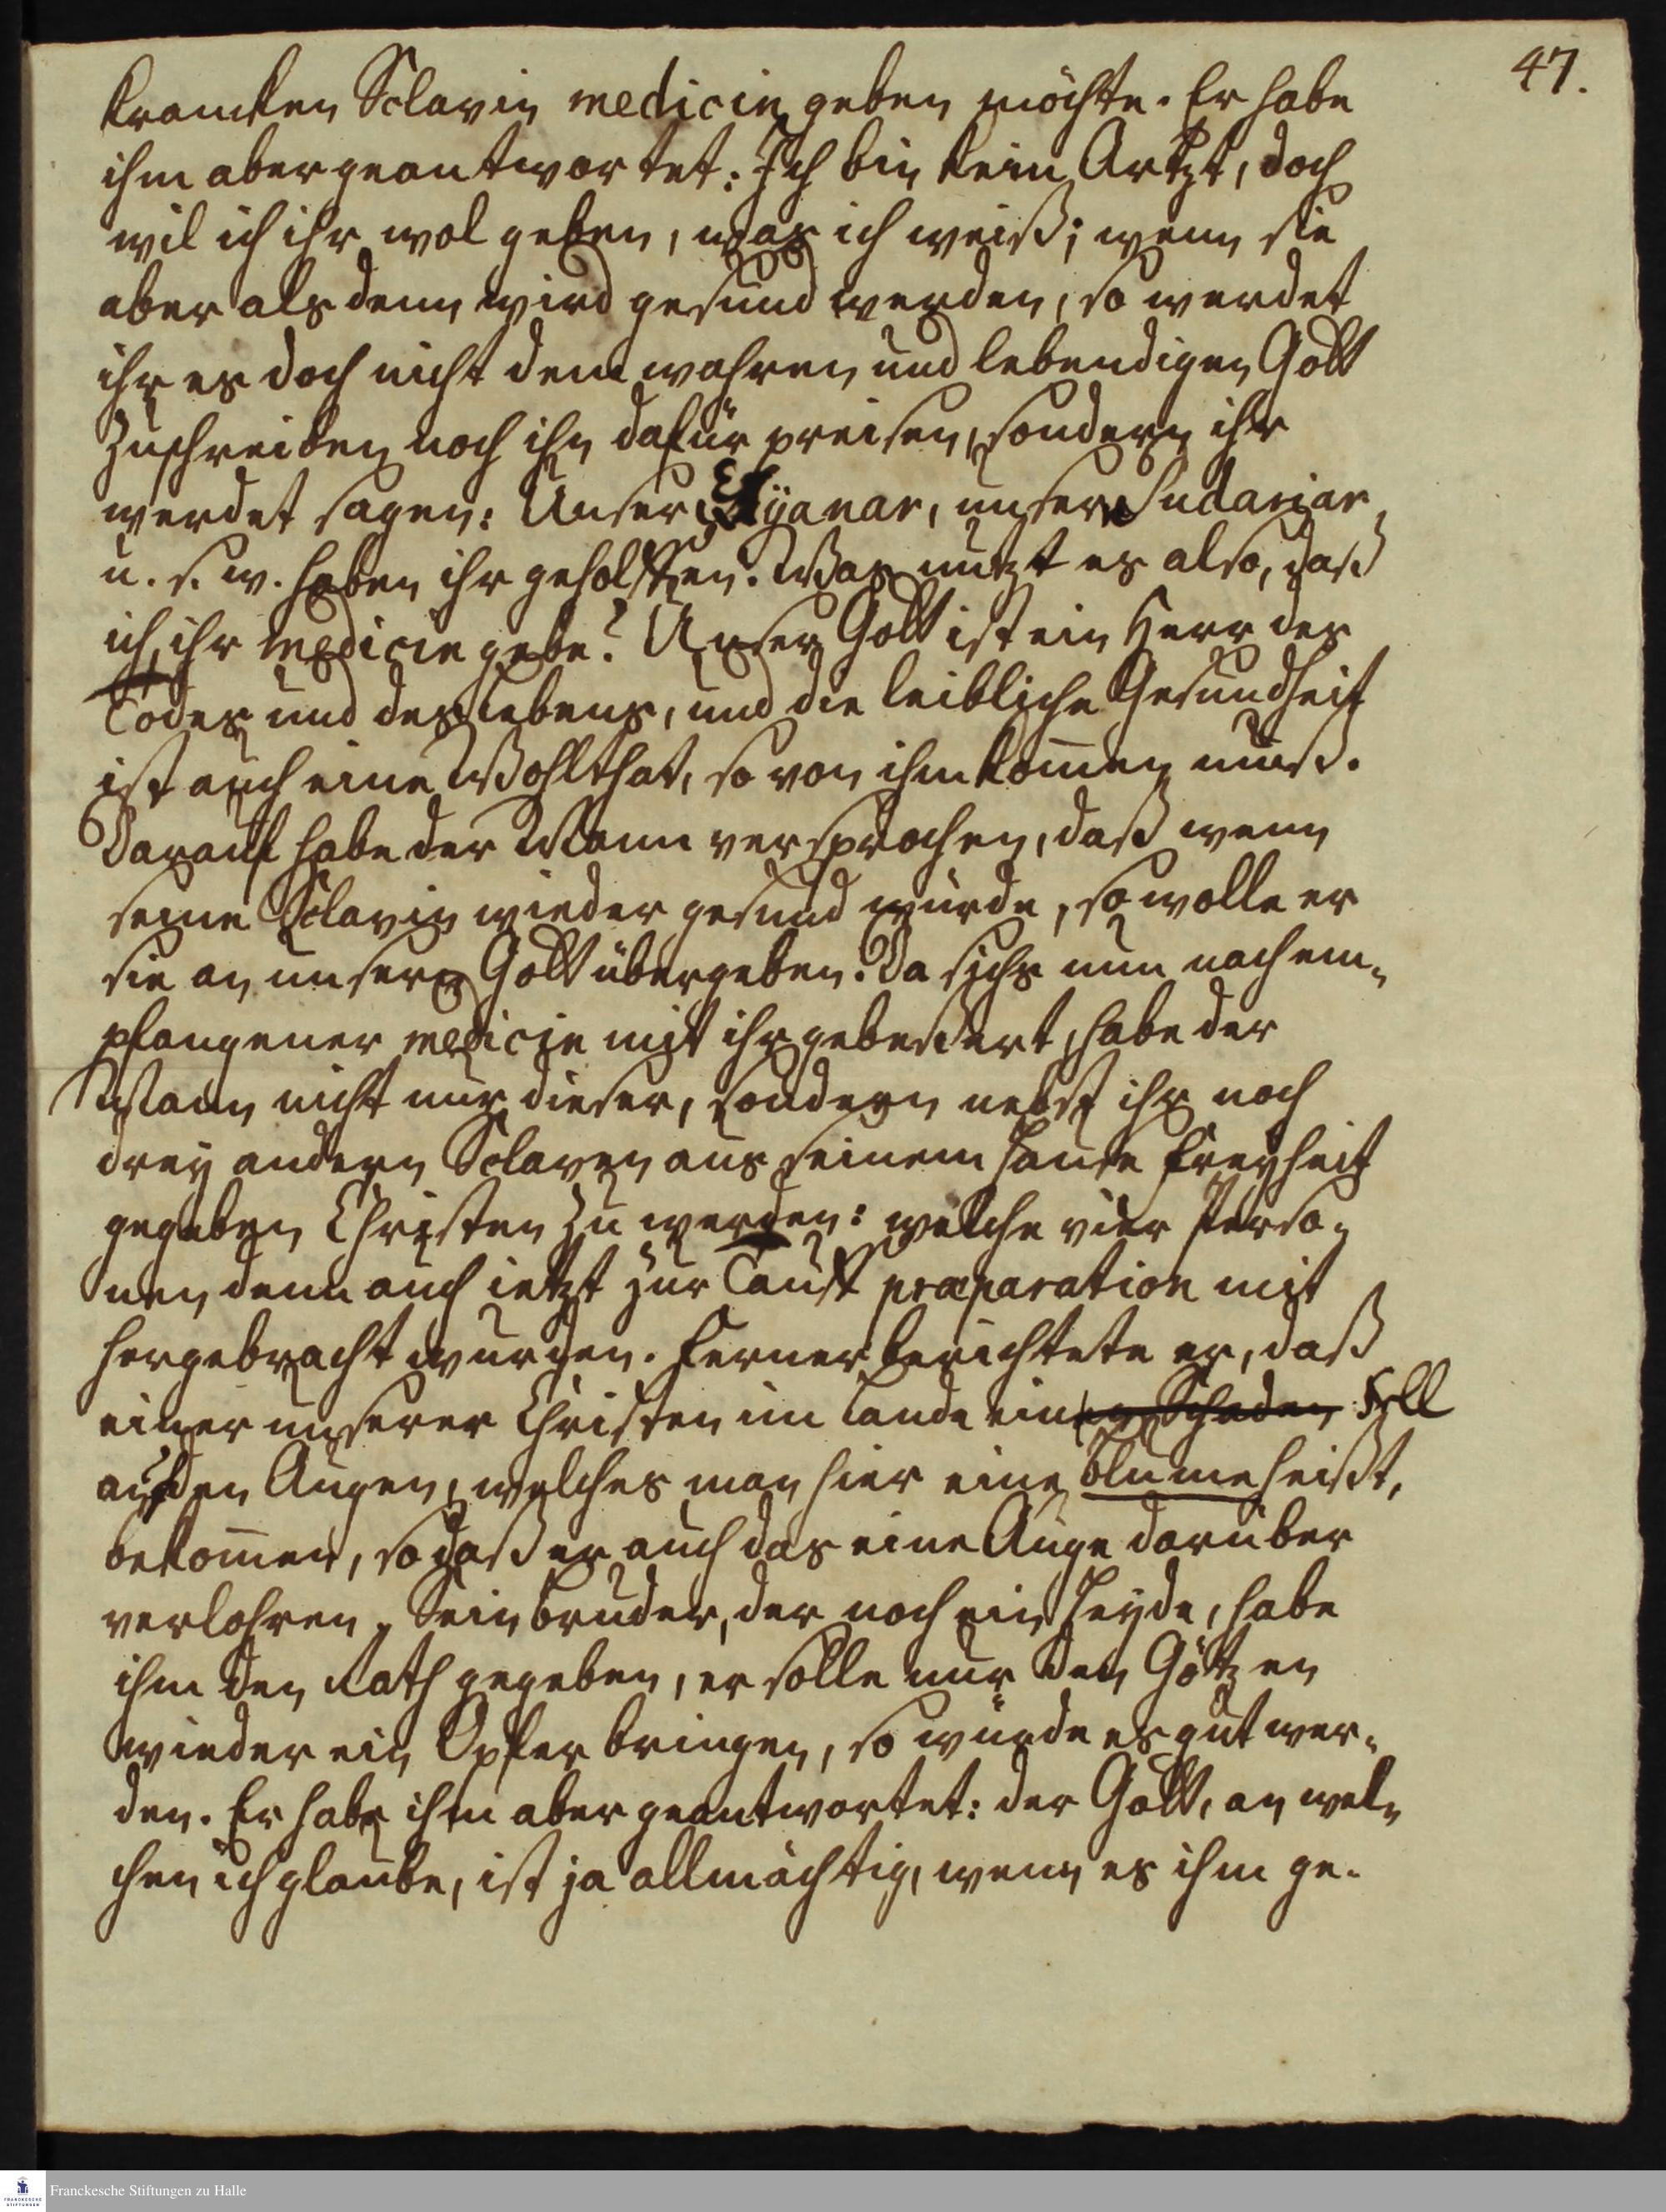 47.
krancken Sclavin medicin geben möchte. Er habe
ihm aber geantwortet: Ich bin kein Artzt, doch
wil ich ihr wol geben, was ich weiß; wenn sie
aber als denn wird gesund werden, so werdet
ihr es doch nicht dem wahren und lebendigen Gott
zuschreiben noch ihn dafür preisen, sondern ihr
werdet sagen: Unser Eyanar, unsere Sudariar,
u. s. w. haben ihr geholffen. Was nützt es also, daß
ich ihr medicin gebe? Unser Gott ist ein Herr des
Todes und des Lebens, und die leibliche Gesundheit
ist auch eine Wohlthat, so von ihm kom̄en muß.
Darauf habe der Mann versprochen, daß wenn
seine Sclavin wieder gesund würde, so wolle er
sie an unsern Gott übergeben. Da sichs nun nach em-
pfangener medicin mit ihr gebessert, habe der
Mann nicht nur dieser, sondern nebst ihr noch
drey andern Sclaven aus seinem Hause Freyheit
gegeben Christen zu werden: welche vier Perso-
nen denn auch ietzt zur Tauf præparation mit
hergebracht wurden. Ferner berichtete er, daß
einer unserer Christen im Lande ein Schaden Fell
auf den Augen, welches man hier eine Blume heißt,
bekom̄en, so daß er auch das eine Auge darüber
verlohren. Sein Bruder, der noch ein Heyde, habe
ihm den Rath gegeben, er solle nur den Götzen
wieder ein Opfer bringen, so würde es gut wer-
den. Er habe ihm aber geantwortet: der Gott, an wel-
chen ich glaube, ist ja allmächtig, wenn es ihm ge-
FRANCKESCHE STIFTUNGEN
Franckesche Stiftungen zu Halle